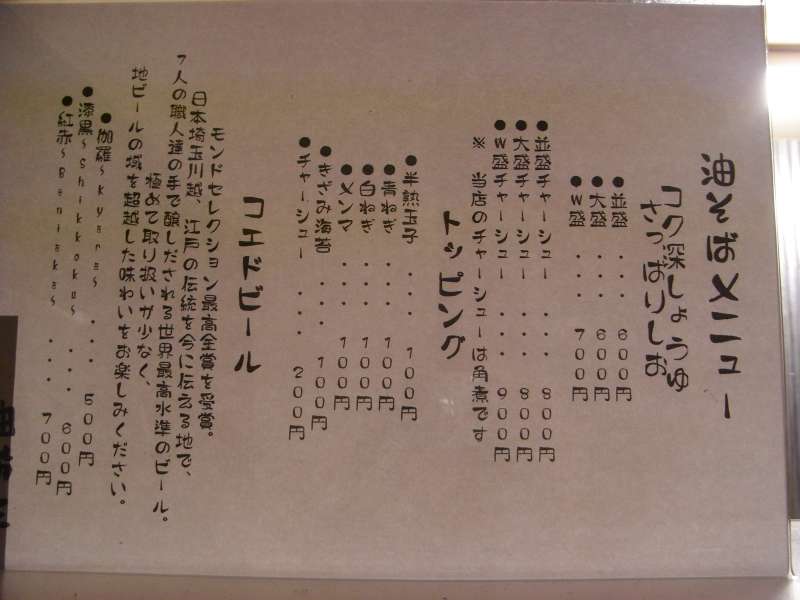 油そばメニュー
コク深しょうゆ
さっぱりしお
●並盛 ... 600円
●大盛 ... 600円
●W盛 ... 700円
●並盛チャーシュー ... 800円
●大盛チャーシュー ... 800円
●W盛チャーシュー ... 900円
※ 当店のチャーシューは角煮です
トッピング
●半熟玉子 ... 100円
●青ねぎ ... 100円
●白ねぎ ... 100円
●メンマ ... 100円
●きざみ海苔 ... 100円
●チャーシュー ... 200円
コエドビール
モンドセレクション最高金賞を受賞。
日本埼玉川越、江戸の伝統を今に伝える地で、
7人の職人達の手で醸しだされる世界最高水準のビール。
極めて取り扱いが少なく、
地ビールの域を超越した味わいをお楽しみください。
●伽羅～Kyara～ ... 500円
●漆黒～Shikkoku～ ... 600円
●紅赤～Beniaka～ ... 700円